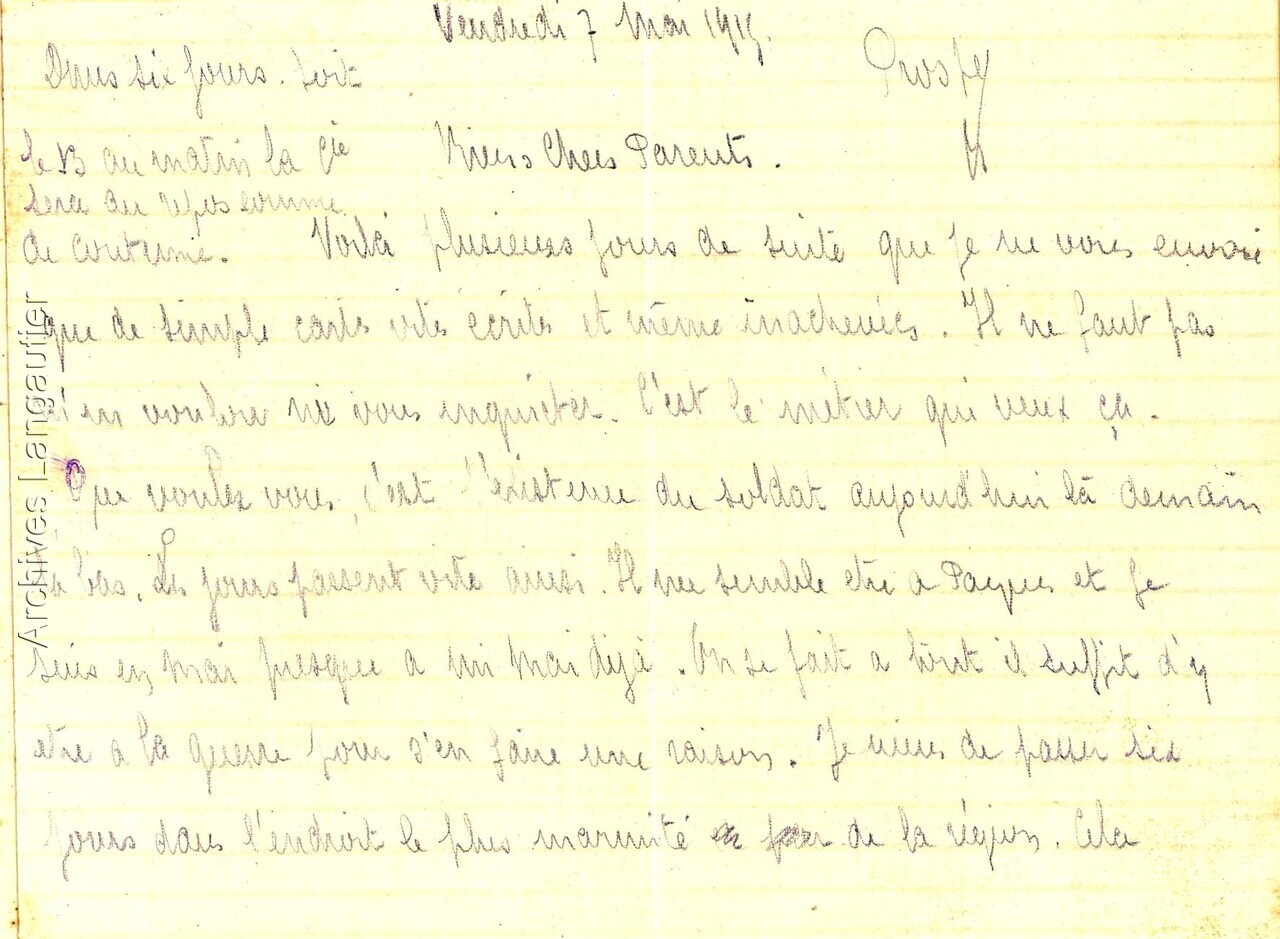 Vendredi 7 Mai 1915.
Prosper
Dans six jours. soit
le 13 au matin la Cie
sera au repos comme
de coutume.
Biens Chers Parents.
Voilà plusieurs jours de suite que je ne vous envoie
que de simple carte vite écrites et même inachevées. Il ne faut pas
m'en vouloir ni vous inquieter. C'est le métier qui veux ça.
Que voulez vous, c'est l'existence du soldat aujourd'hui là demain
là bas. Les jours passent vite ainsi. Il me semble etre a Paques et je
suis en Mai presque a mi Mai déjà. On se fait a tout il suffit d'y
etre a la guerre pour s'en faire une raison. Je viens de passer six
jours dans l'endroit le plus marmité de la région. Cela
Archives Langautier